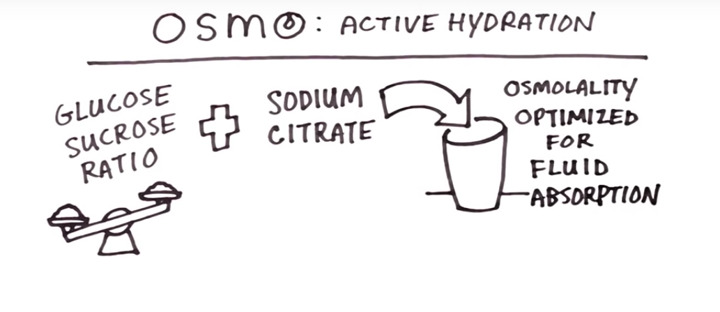 OSMO: ACTIVE HYDRATION
GLUCOSE
SUCROSE
RATIO
SODIUM
CITRATE
OSMOLALITY
OPTIMIZED
FOR
FLUID
ABSORPTION